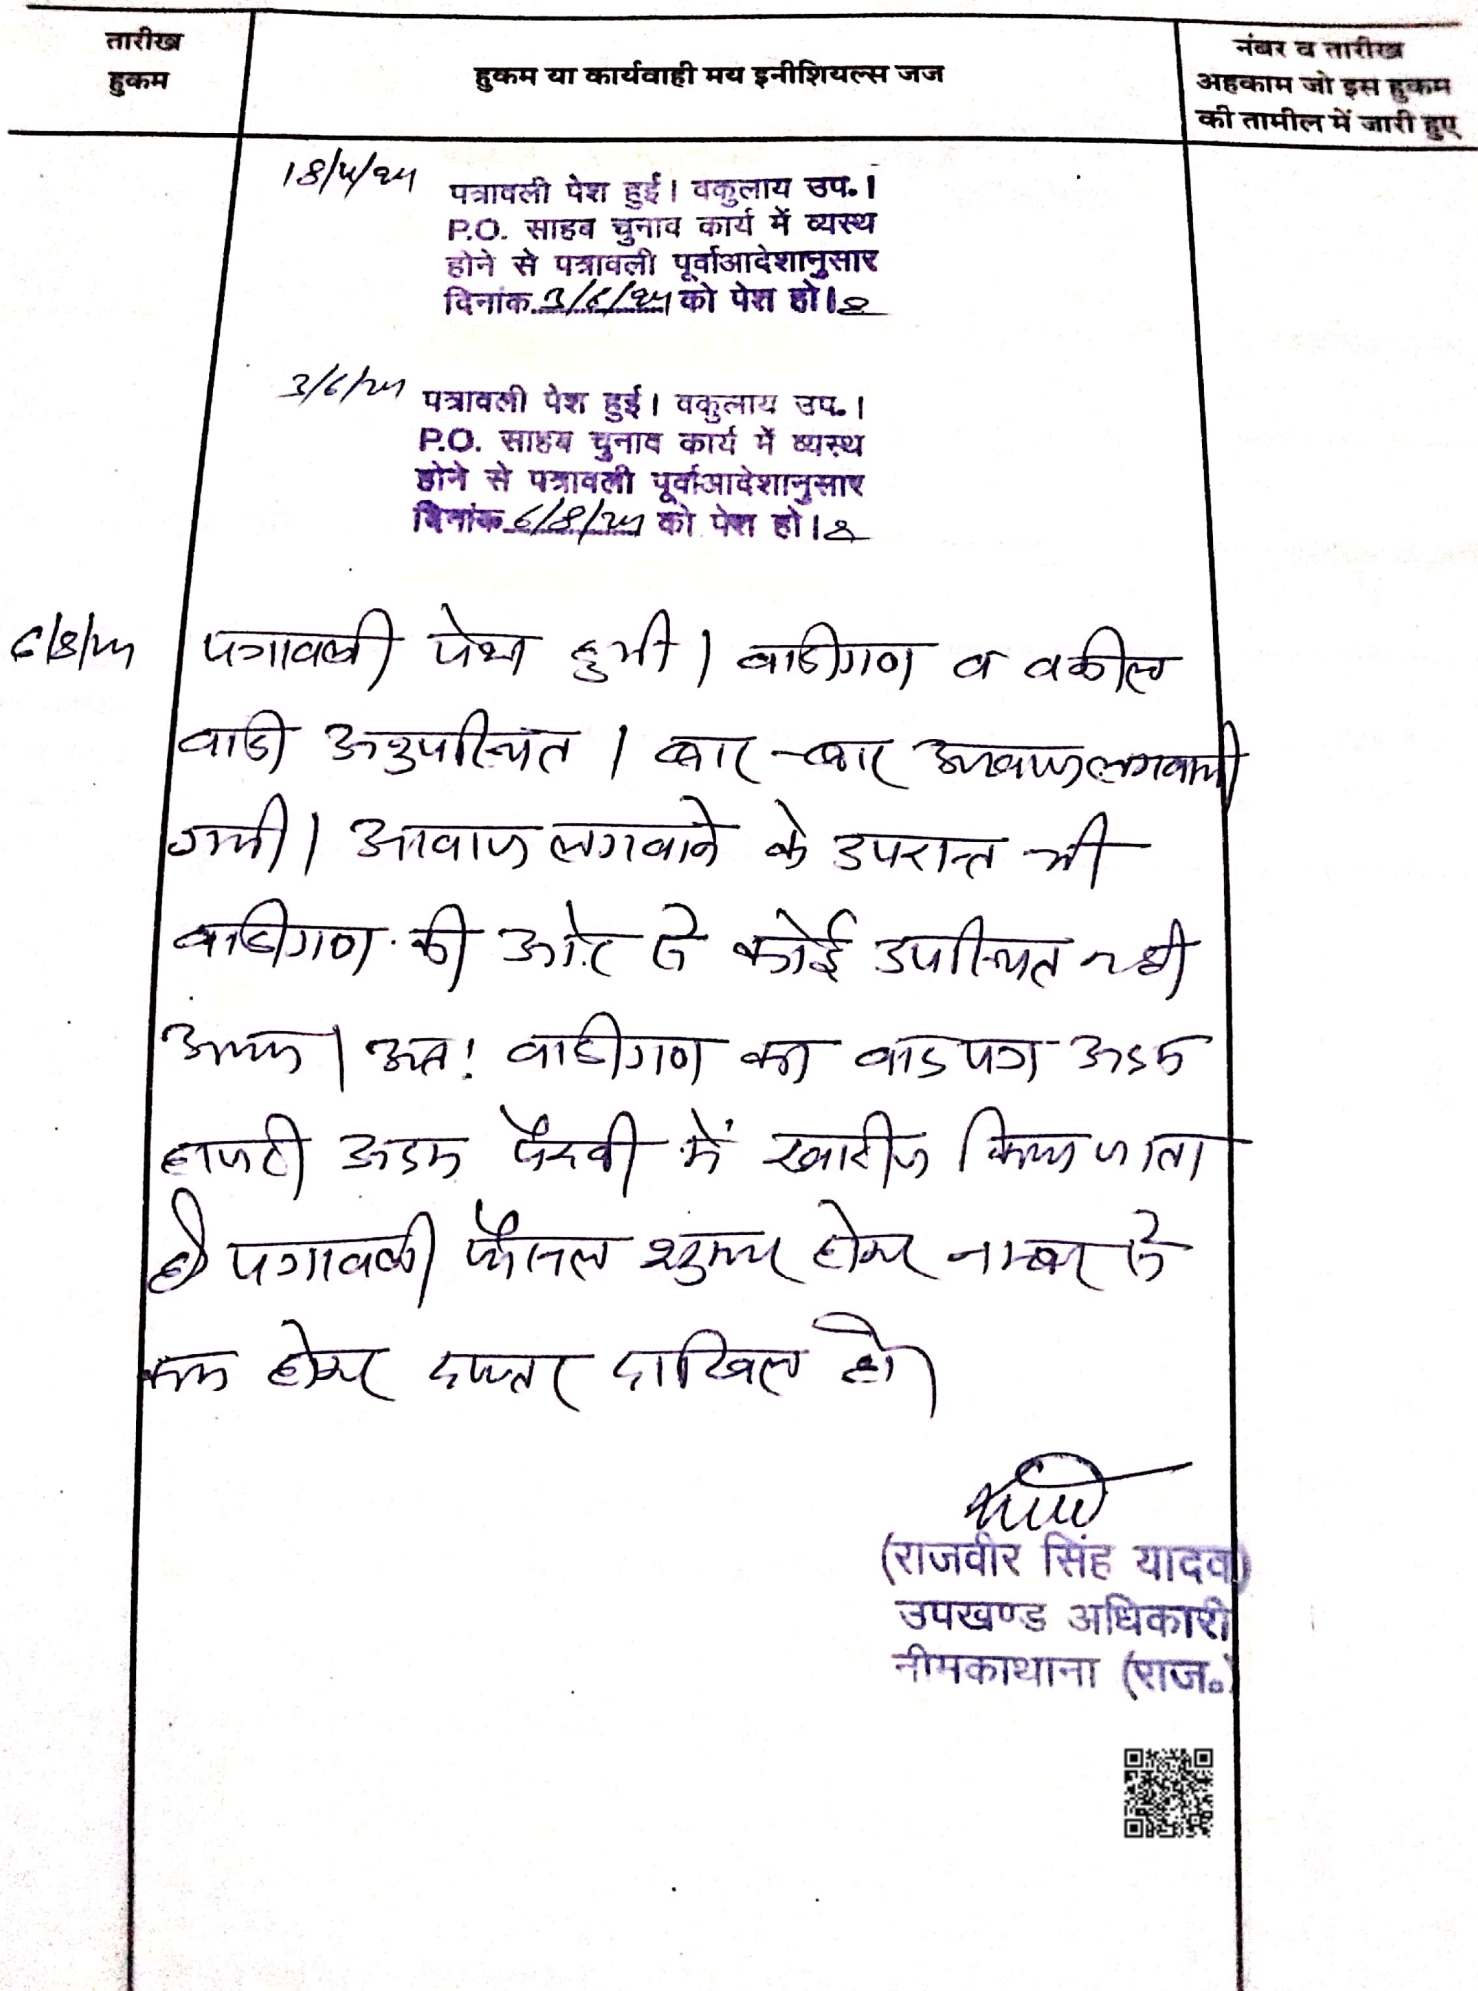 तारीख
हुकम
हुकम या कार्यवाही मय इनीशियल्स जज
नंबर व तारीख
अहकाम जो इस हुकम
की तामील में जारी हुए
18/4/24 पत्रावली पेश हुई। वकुलाय उप.।
P.O. साहब चुनाव कार्य में व्यस्थ
होने से पत्रावली पूर्वाआदेशानुसार
दिनांक 3/6/24 को पेश हो।
3/6/24 पत्रावली पेश हुई। वकुलाय उप.।
P.O. साहब चुनाव कार्य में व्यस्थ
होने से पत्रावली पूर्वाआदेशानुसार
दिनांक 6/8/24 को पेश हो।
6/8/24 पत्रावली पेश हुयी। वादीगण व वकील
वादी अनुपस्थित। बार-बार आवाज लगवायी
गयी। आवाज लगवाने के उपरान्त भी
वादीगण की ओर से कोई उपस्थित नही
आया। अतः वादीगण का वाद पत्र अदम
हाजरी अदम पैरवी में खारीज किया जाता
है पत्रावली फैसल शुमार होकर नम्बर से
कम होकर दफ्तर दाखिल हो।
(राजवीर सिंह यादव)
उपखण्ड अधिकारी
नीमकाथाना (राज०)